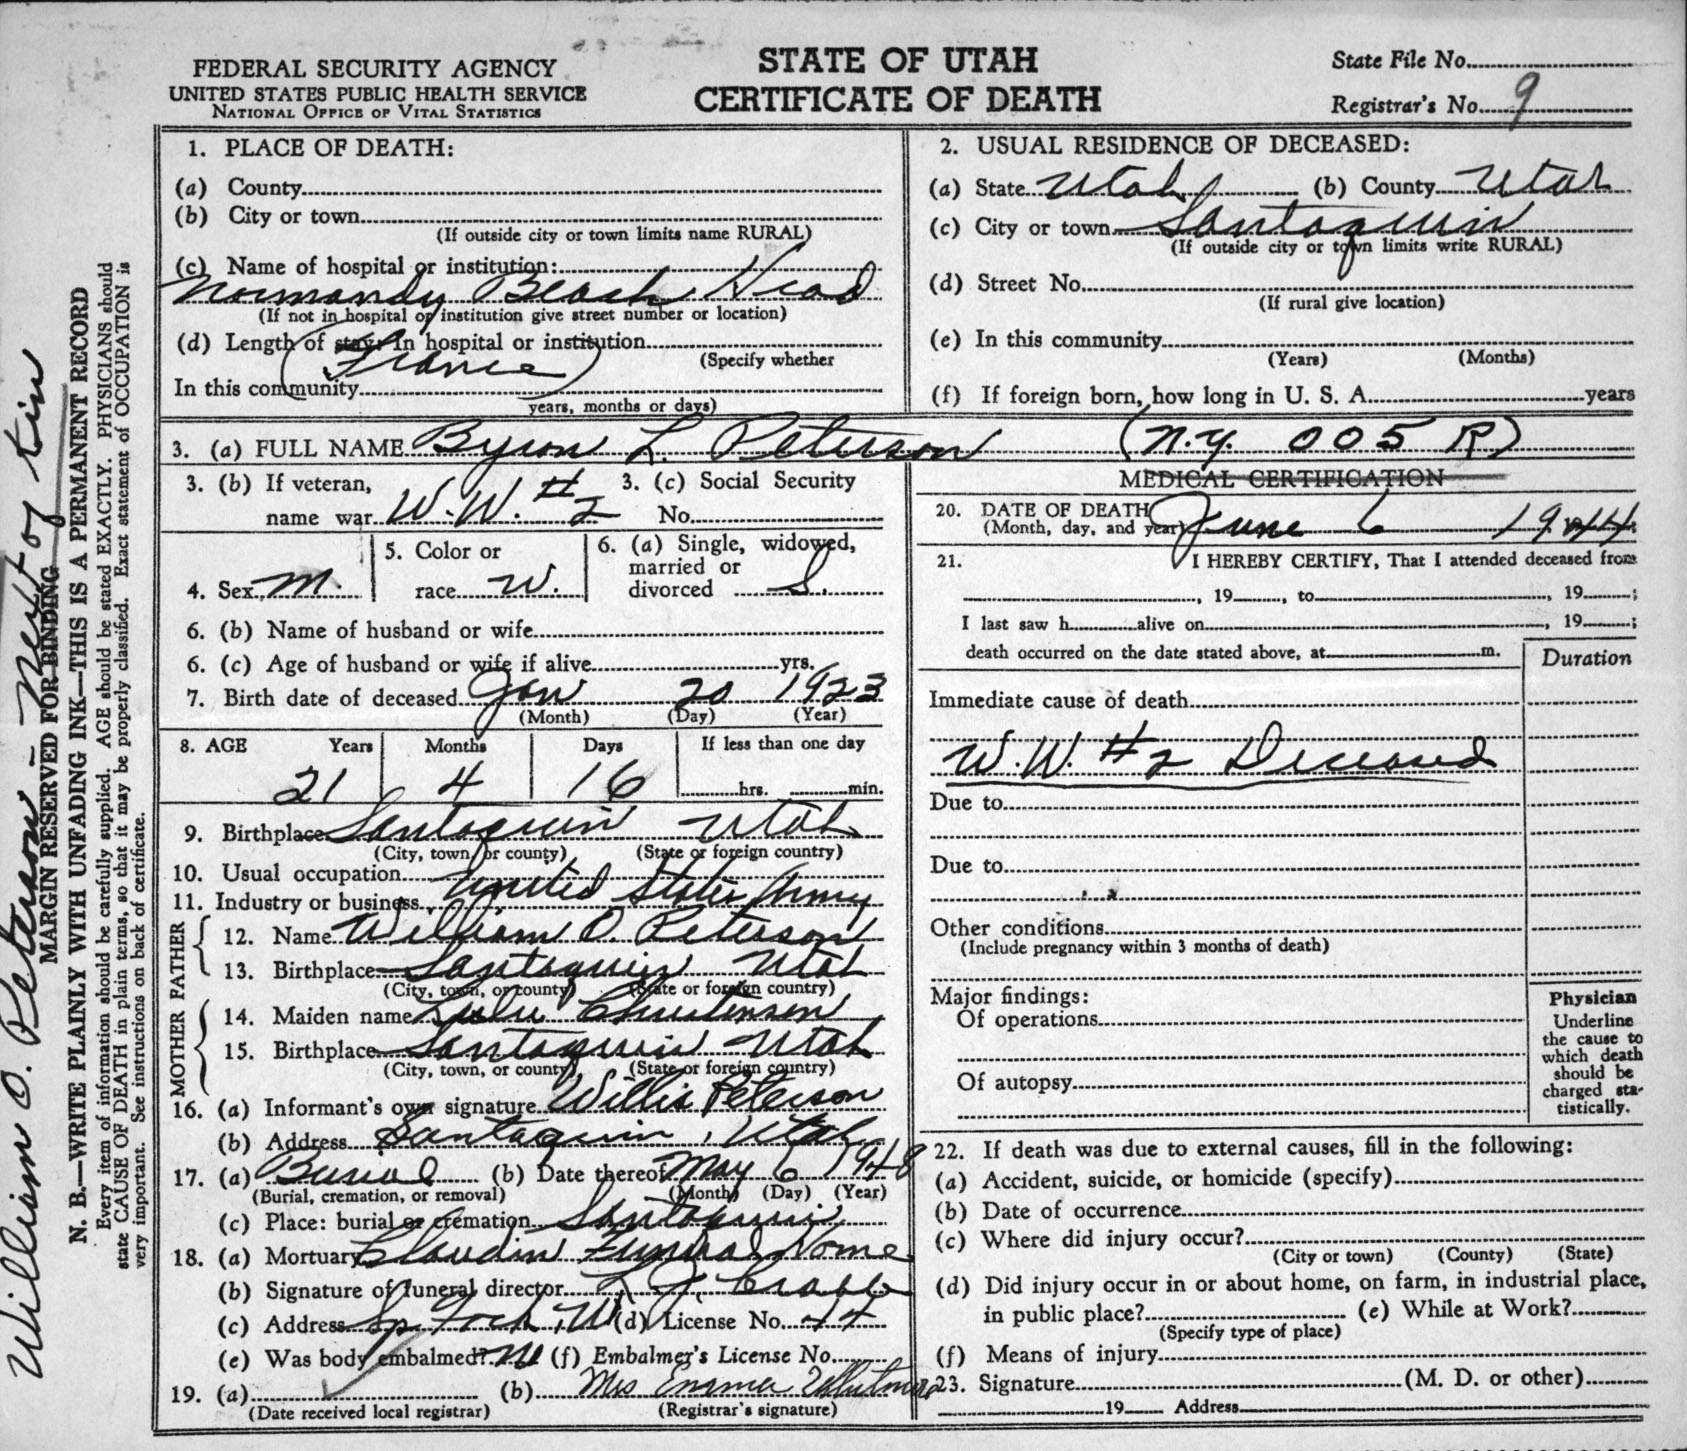 FEDERAL SECURITY AGENCY
UNITED STATES PUBLIC HEALTH SERVICE
NATIONAL OFFICE OF VITAL STATISTICS
STATE OF UTAH
CERTIFICATE OF DEATH
State File No.
Registrar's No. 9
1. PLACE OF DEATH:
(a) County
(b) City or town
(If outside city or town limits name RURAL)
(c) Name of hospital or institution:
Normandy Beach Head
(If not in hospital or institution give street number or location)
(d) Length of stay: In hospital or institution
(France)
(Specify whether
In this community
years, months or days)
2. USUAL RESIDENCE OF DECEASED:
(a) State Utah (b) County Utah
(c) City or town Santaquin
(If outside city or town limits write RURAL)
(d) Street No.
(If rural give location)
(e) In this community
(Years) (Months)
(f) If foreign born, how long in U. S. A. years
3. (a) FULL NAME Byron L. Peterson (N.Y. 005 R)
3. (b) If veteran, name war W.W. #2
3. (c) Social Security No.
4. Sex M.
5. Color or race W.
6. (a) Single, widowed, married or divorced S.
6. (b) Name of husband or wife
6. (c) Age of husband or wife if alive yrs.
7. Birth date of deceased Jan 20 1923
(Month) (Day) (Year)
8. AGE Years Months Days If less than one day
21 4 16 hrs. min.
9. Birthplace Santaquin Utah
(City, town, or county) (State or foreign country)
10. Usual occupation
11. Industry or business United States Army
FATHER
12. Name William O. Peterson
13. Birthplace Santaquin Utah
(City, town, or county) (State or foreign country)
MOTHER
14. Maiden name Lulu Christensen
15. Birthplace Santaquin Utah
(City, town, or county) (State or foreign country)
16. (a) Informant's own signature Willis Peterson
(b) Address Santaquin, Utah
17. (a) Burial (b) Date thereof May 6 1948
(Burial, cremation, or removal) (Month) (Day) (Year)
(c) Place: burial or cremation Santaquin
18. (a) Mortuary Claudin Funeral Home
(b) Signature of funeral director
(c) Address Sp. Fork, Ut (d) License No. 44
(e) Was body embalmed? (f) Embalmer's License No.
19. (a) (b) Mrs
(Date received local registrar) (Registrar's signature)
MEDICAL CERTIFICATION
20. DATE OF DEATH
(Month, day, and year) June 6 1944
21. I HEREBY CERTIFY, That I attended deceased from
, 19 , to , 19 ;
I last saw h alive on , 19 ;
death occurred on the date stated above, at m.
Duration
Immediate cause of death
W.W. #2 Deceased
Due to
Due to
Other conditions
(Include pregnancy within 3 months of death)
Major findings:
Of operations
Of autopsy
Physician
Underline
the cause to
which death
should be
charged sta-
tistically.
22. If death was due to external causes, fill in the following:
(a) Accident, suicide, or homicide (specify)
(b) Date of occurrence
(c) Where did injury occur?
(City or town) (County) (State)
(d) Did injury occur in or about home, on farm, in industrial place,
in public place? (e) While at Work?
(Specify type of place)
(f) Means of injury
23. Signature (M. D. or other)
19 Address
William O. Peterson - Next of kin
MARGIN RESERVED FOR BINDING
N. B.—WRITE PLAINLY WITH UNFADING INK—THIS IS A PERMANENT RECORD
Every item of information should be carefully supplied. AGE should be stated EXACTLY. PHYSICIANS should
state CAUSE OF DEATH in plain terms, so that it may be properly classified. Exact statement of OCCUPATION is
very important. See instructions on back of certificate.